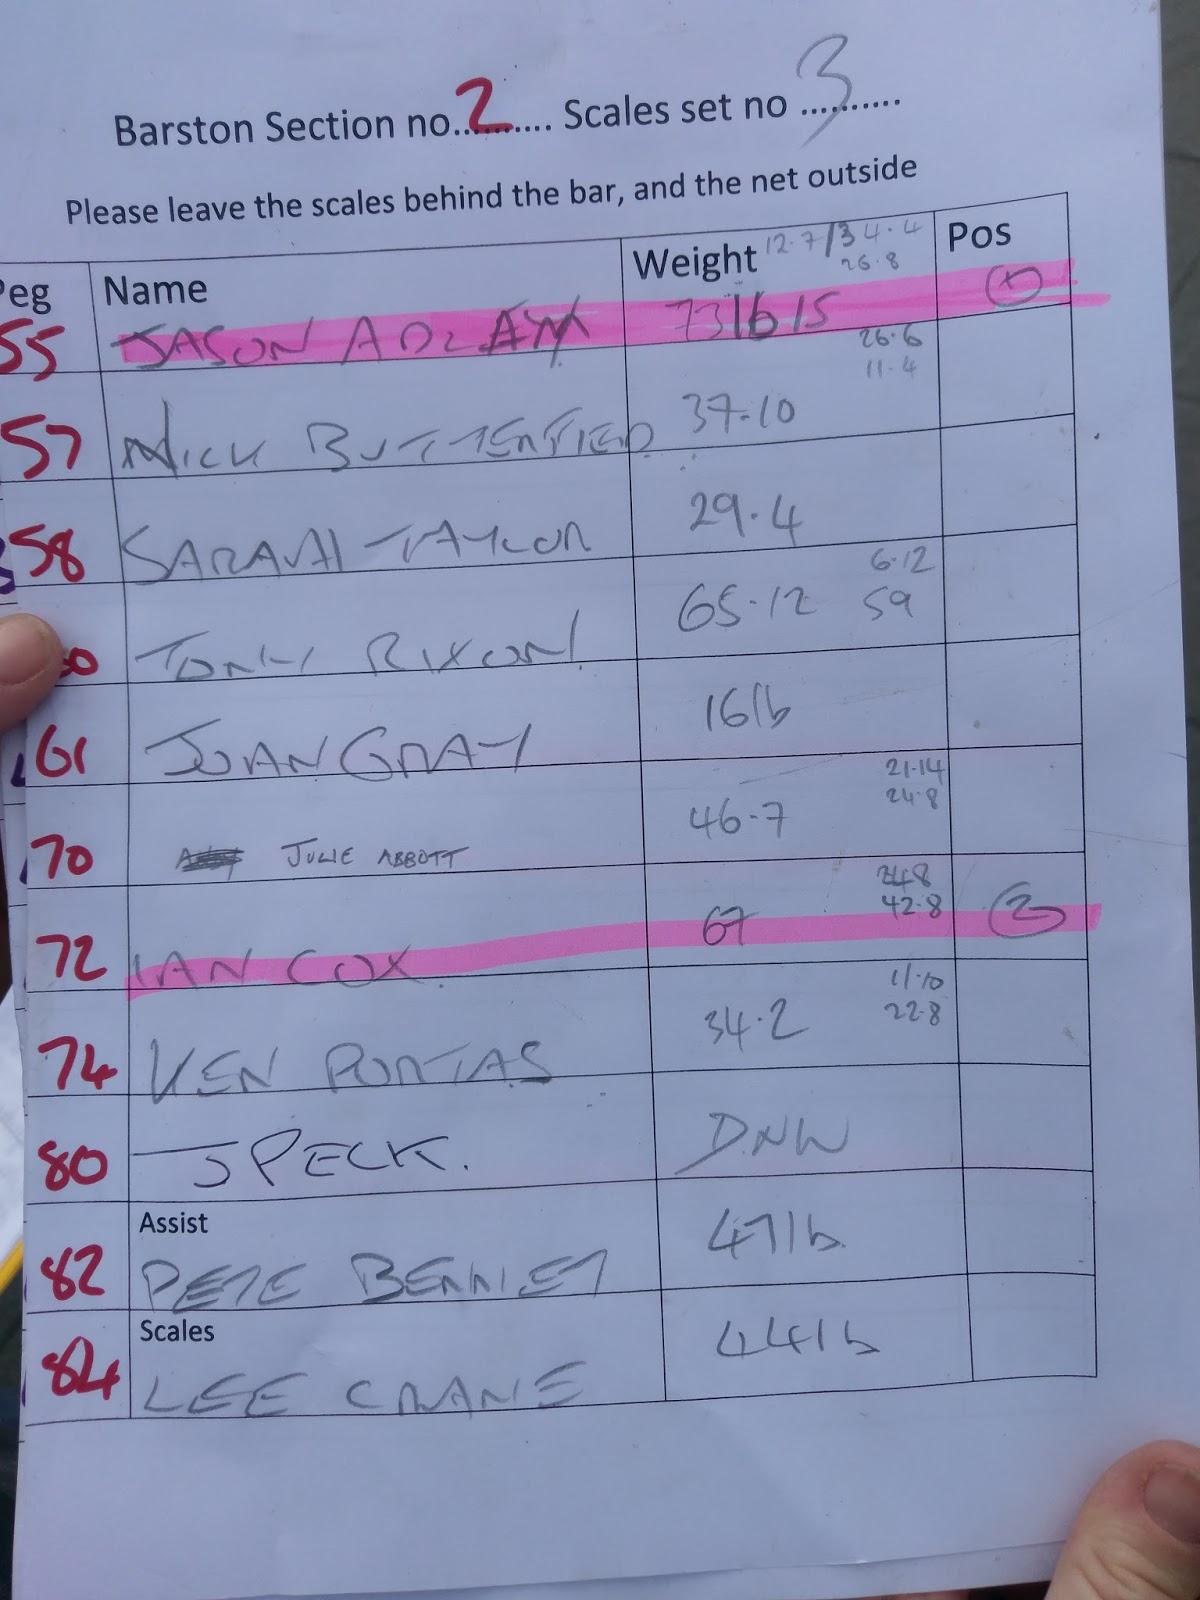 Barston Section no..2....... Scales set no ...3.......
Please leave the scales behind the bar, and the net outside
Peg Name Weight 12.7/34.4 Pos
26.8
55 JASON ADLAM 73lb15 1
26.6
11.4
57 NICK BUTTERFIELD 37-10
58 SARAH TAYLOR 29.4
6.12
TONY RIXON 65.12 59
61 JUAN GRAY 16lb
21.14
24.8
70 JULIE ABBOTT 46-7
24.8
42.8
72 IAN COX 67 2
11.10
22.8
74 KEN PORTAS 34.2
80 J PECK. DNW
Assist
82 PETE BENNET 47lb
Scales
84 LEE CRANE 44lb